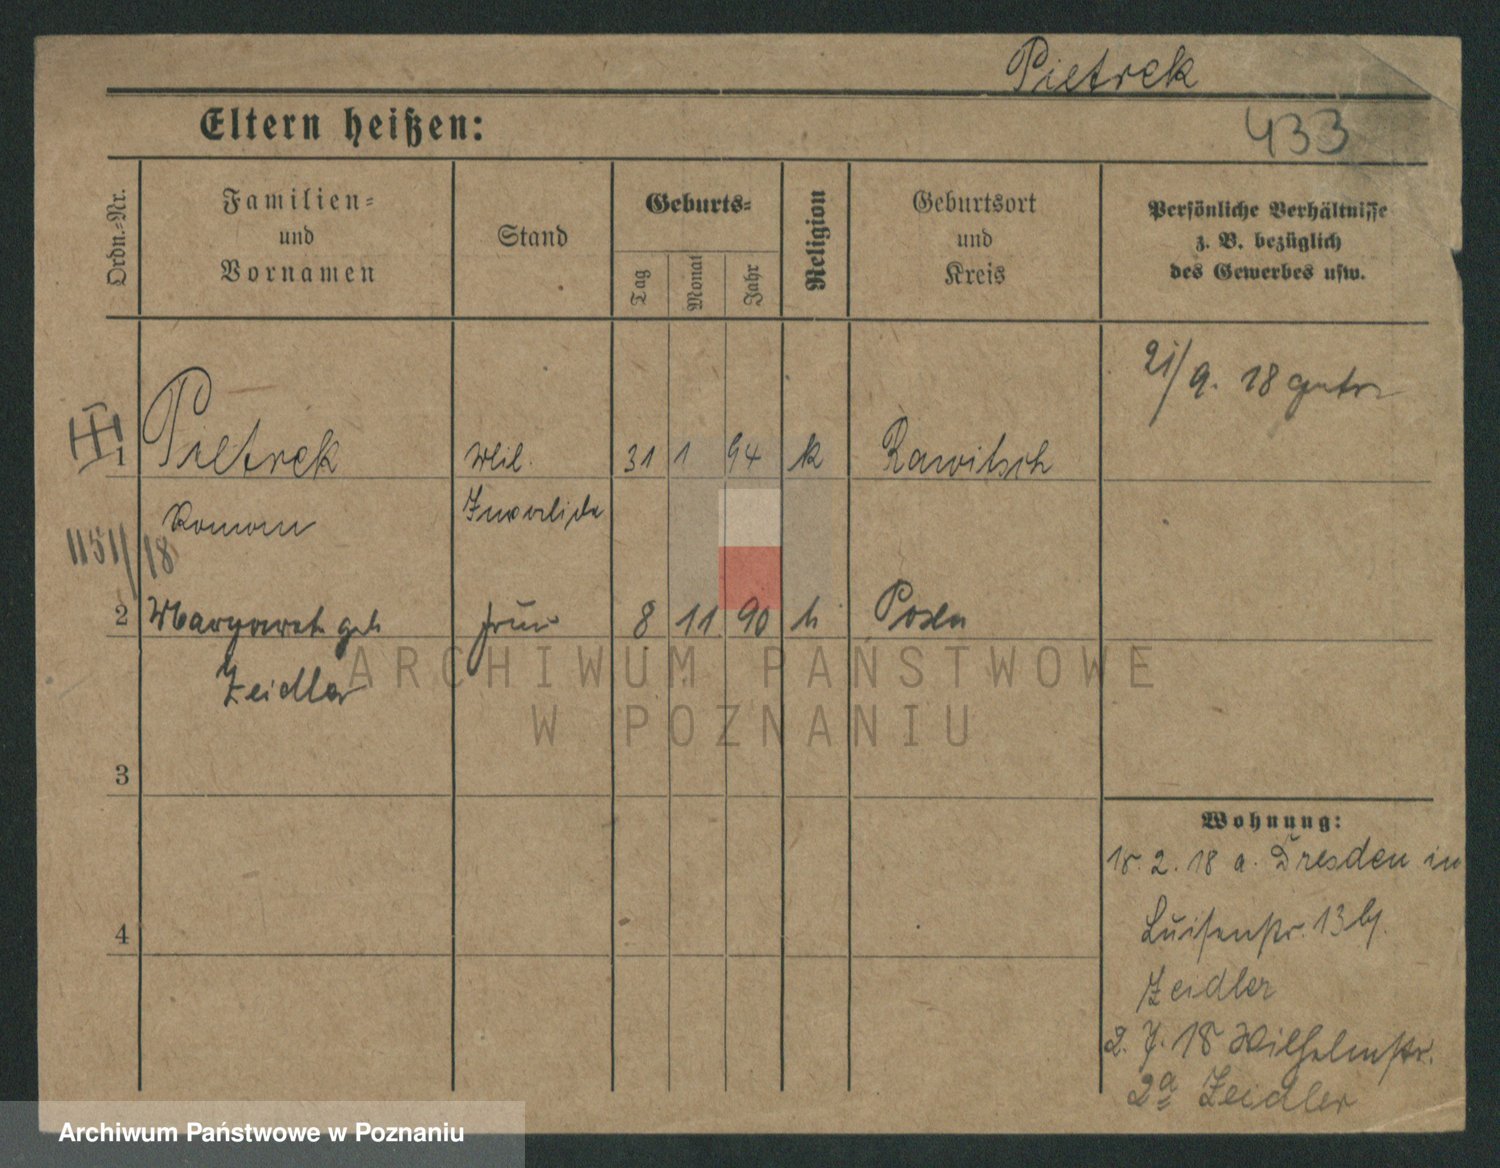 Pietrek
Eltern heißen:
433
Ordn.-Nr.
Familien-
und
Vornamen
Stand
Geburts-
Tag
Monat
Jahr
Religion
Geburtsort
und
Kreis
Persönliche Verhältnisse
z. B. bezüglich
des Gewerbes usw.
21/9. 18
1 Pietrek Mil. 31 1 94 k Rawitsch
Roman Invalide
1151/18
2 Margaret geb Frau 8 11 90 k Posen
Zeidler
ARCHIWUM PAŃSTWOWE
W POZNANIU
3
4
Wohnung:
18. 2. 18 a. Dresden in
Luisenstr. 13 b/
Zeidler
2. 7. 18 Wilhelmstr.
2a Zeidler
Archiwum Państwowe w Poznaniu